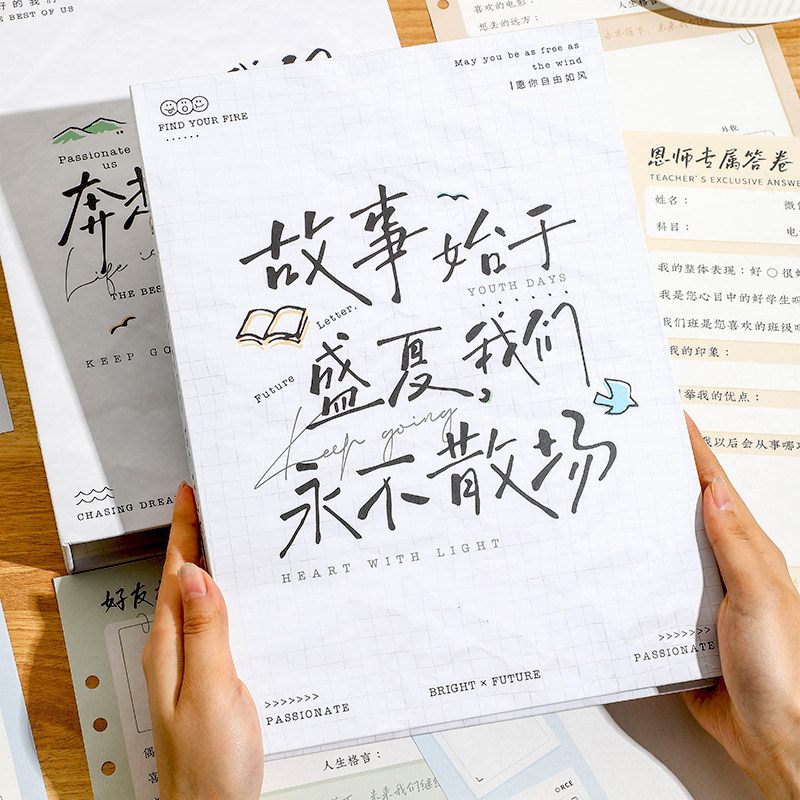 THE BEST OF US
喜欢的电影:
人生格言:
想去的远方:
May you be as free as
the wind
愿你自由如风
FIND YOUR FIRE
Passionate
us
THE BES
KEEP GO
CHASING DREA
故事始于
YOUTH DAYS
Letter.
盛夏,我们
Future
Keep going
永不散场
HEART WITH LIGHT
>>>>>>>
PASSIONATE
BRIGHT × FUTURE
>>>>>>>
PASSIONATE
恩师专属答卷
TEACHER'S EXCLUSIVE ANSWE
姓名:
科目:
我的整体表现:好 ○ 很
我是您心目中的好学生
我们班是您喜欢的班级
我的印象:
举我的优点:
我以后会从事哪
好友
人生格言:
未来我们继续